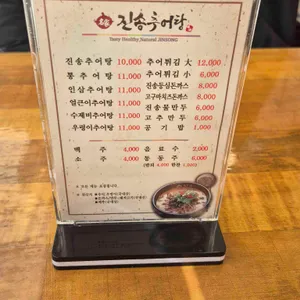 진송추어탕
Tasty Healthy Natural JINSONG
진송추어탕 10,000 추어튀김 大 12,000
통추어탕 11,000 추어튀김 小 6,000
인삼추어탕 11,000 진송등심돈까스 8,000
얼큰추어탕 11,000 고구마치즈돈까스 8,000
수제비추어탕 11,000 진송물만두 6,000
우렁이추어탕 11,000 고추만두 6,000
공기밥 1,000
맥주 4,000 음료수 2,000
소주 4,000 동동주 6,000